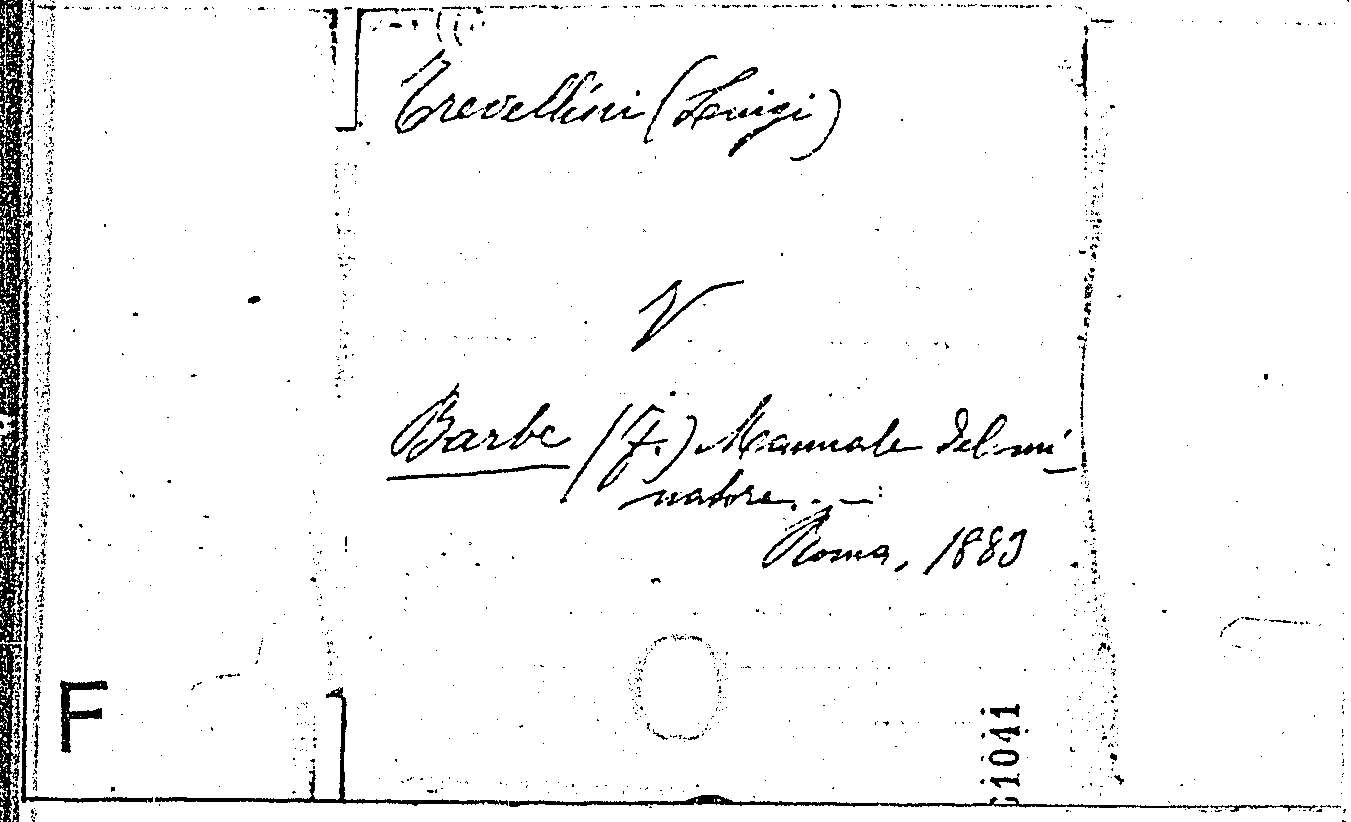 Trevellini (Luigi)
V
Barbe (J.) Manuale del mi-
natore. . — :
Roma, 1883
F
61041